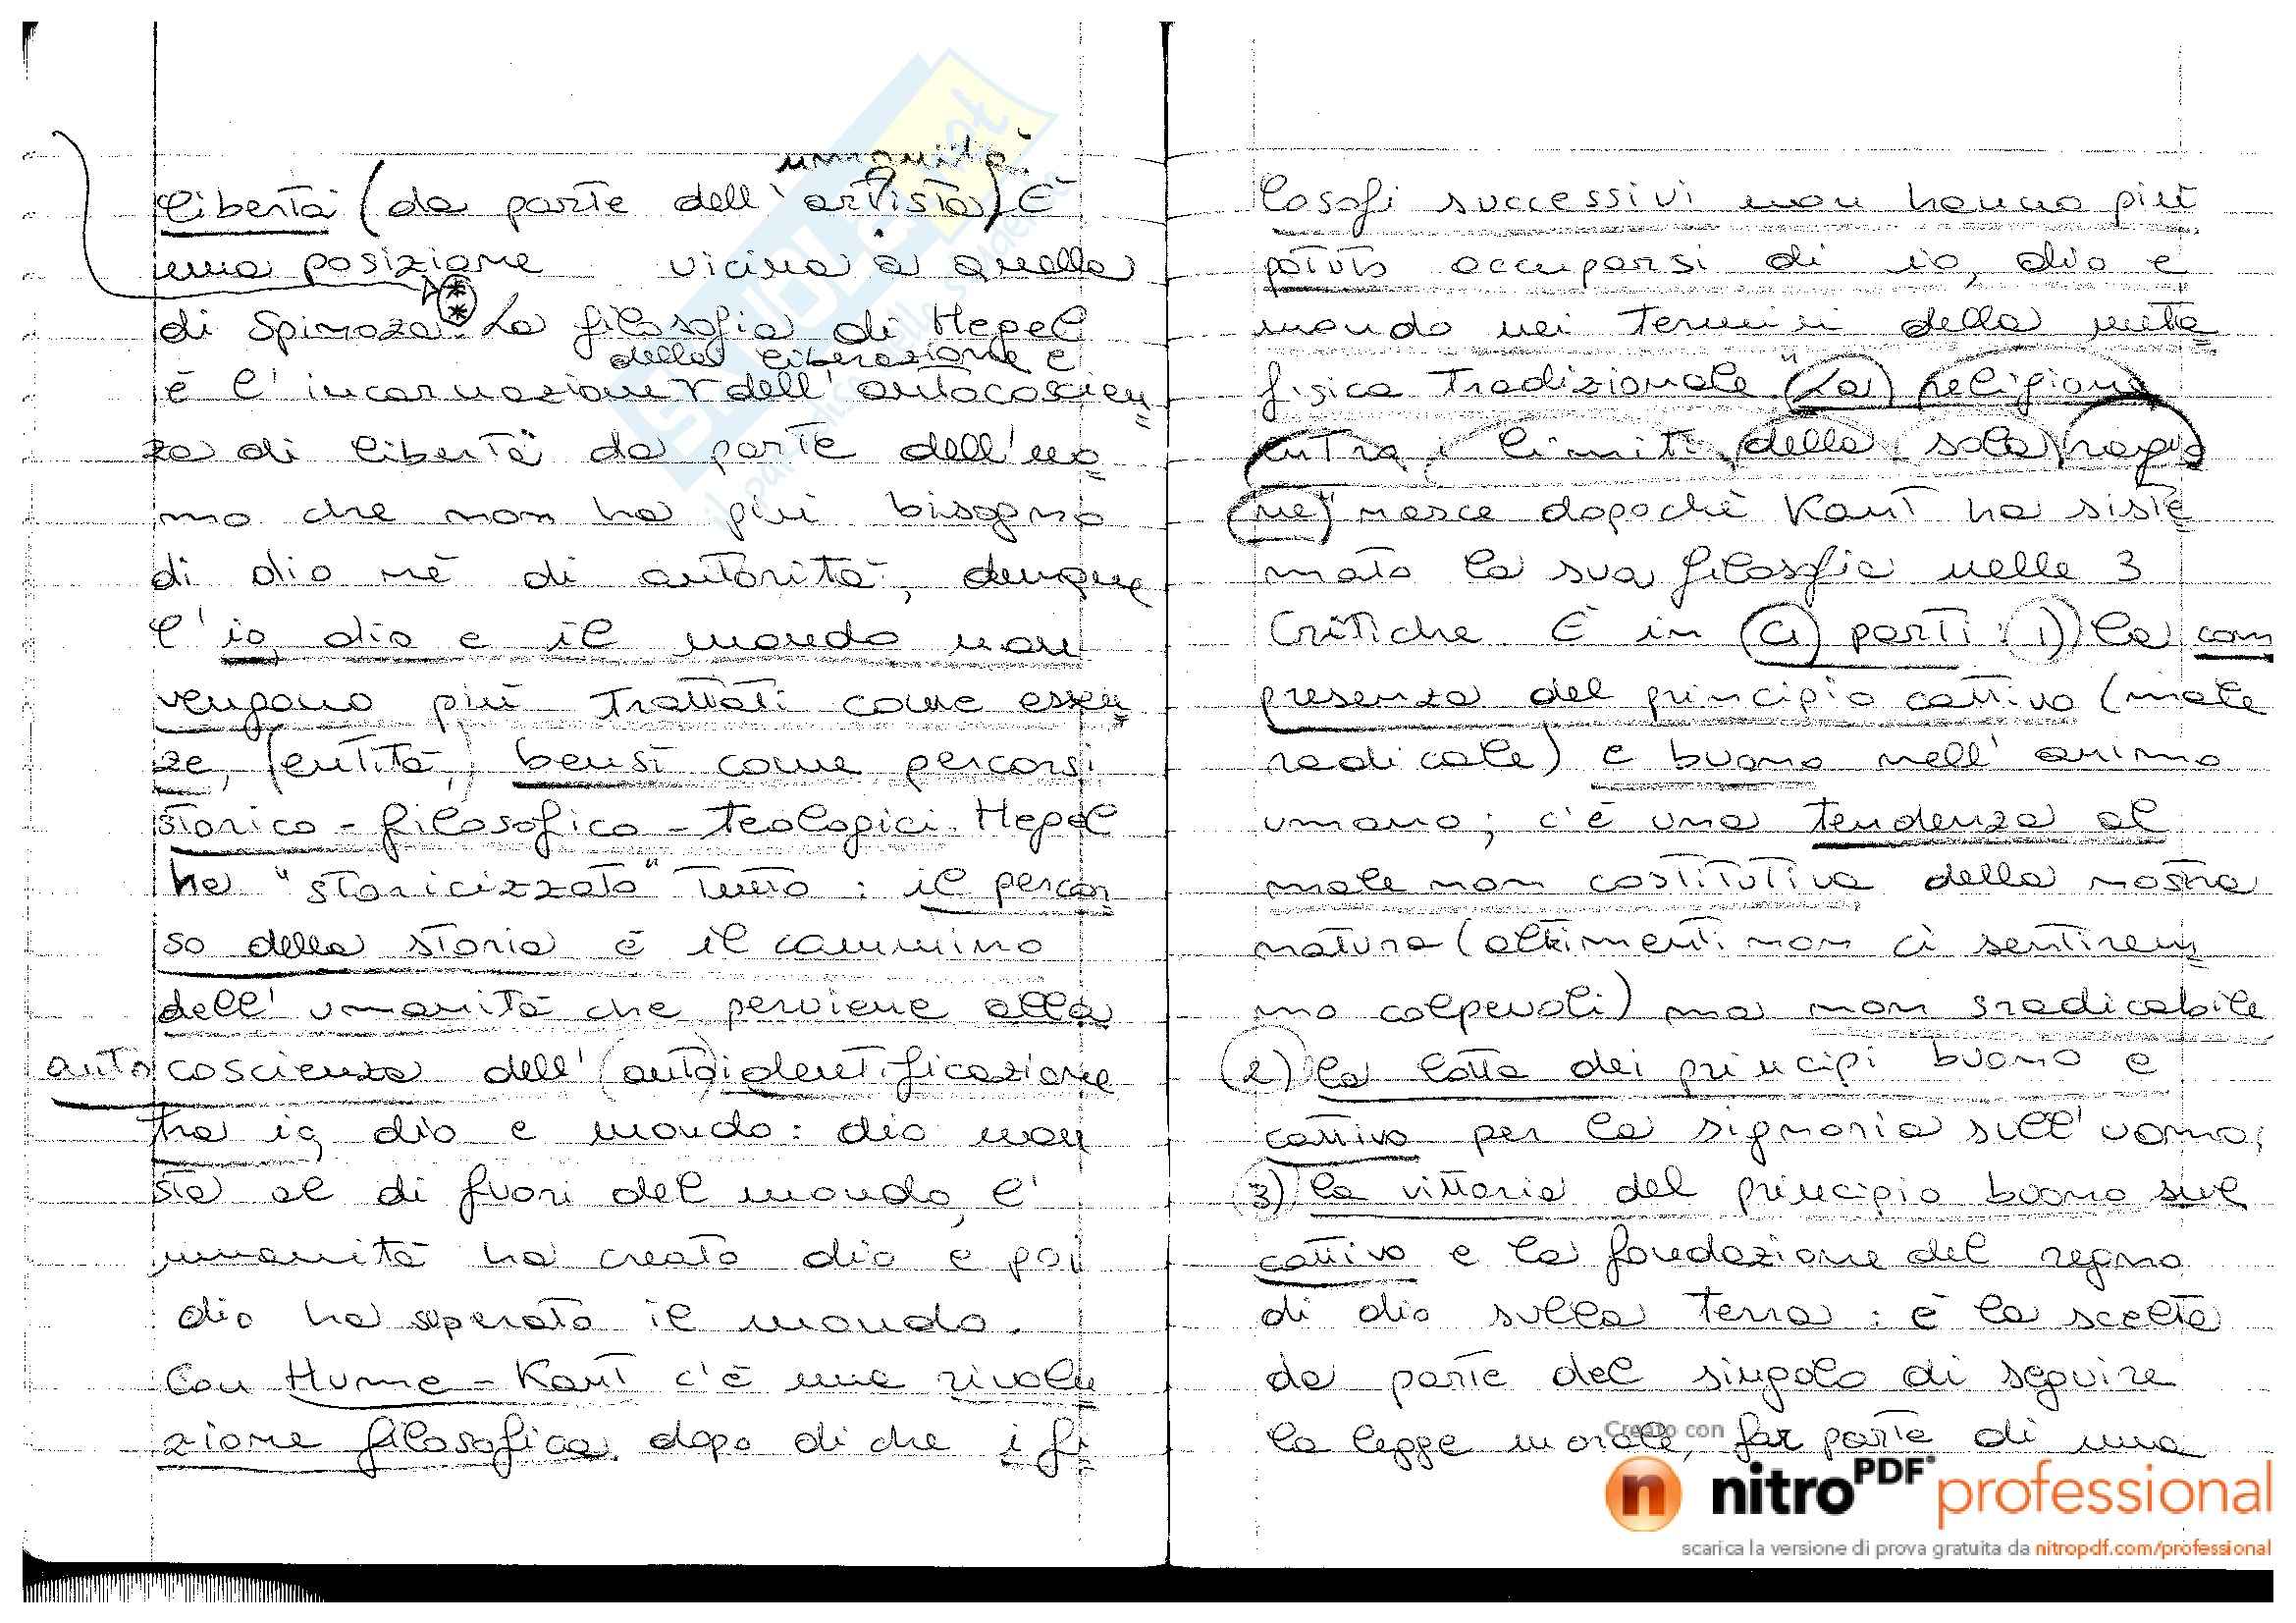 umanità
libertà (da parte dell'artista) È
una posizione vicina a quella
di Spinoza. ** La filosofia di Hegel
della liberazione e
è l'incarnazione dell'autocoscien
za di libertà da parte dell'uo
mo che non ha più bisogno
di dio nè di autorità, dunque
l'io, dio e il mondo non
vengono più trattati come essen
ze, (entità,) bensì come percorsi
storico-filosofico-teologici. Hegel
ha "storicizzato" tutto: il percor
so della storia è il cammino
dell'umanità che perviene alla
autocoscienza dell'(auto)identificazione
tra io, dio e mondo: dio non
sta al di fuori del mondo, l'
umanità ha creato dio e poi
dio ha separato il mondo.
Con Hume-Kant c'è una rivolu
zione filosofica dopo di che i fi
losofi successivi non hanno più
potuto occuparsi di io, dio e
mondo nei termini della meta
fisica tradizionale. "La religione
entro i limiti della sola ragio
ne" nasce dopochè Kant ha siste
mato la sua filosofia nelle 3
Critiche. È in 4 parti: 1) la com
presenza del principio cattivo (male
radicale) e buono nell'animo
umano; c'è una tendenza al
male non costitutiva della nostra
natura (altrimenti non ci sentirem
mo colpevoli) ma non sradicabile
2) la lotta dei principi buono e
cattivo per la signoria sull'uomo;
3) la vittoria del principio buono sul
cattivo e la fondazione del regno
di dio sulla terra: è la scelta
da parte del singolo di seguire
la legge morale, far parte di una
Creato con
nitroPDF professional
scarica la versione di prova gratuita da nitropdf.com/professional